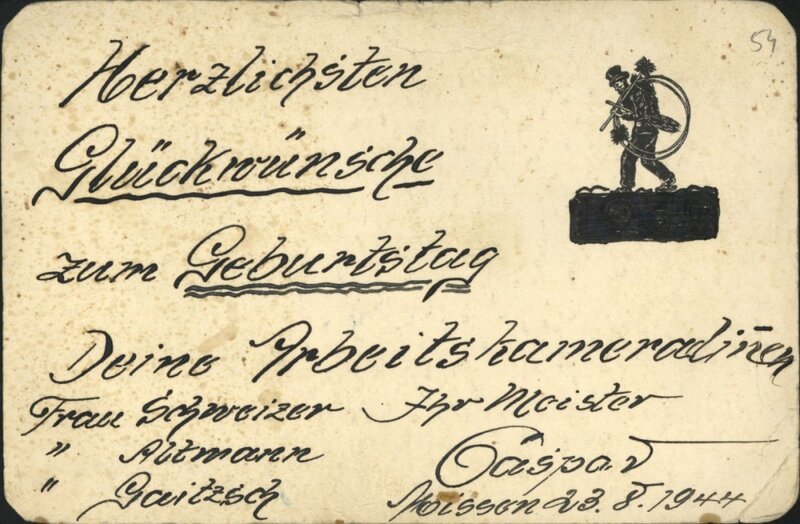 54
Herzlichsten
Glückwünsche
zum Geburtstag
Deine Arbeitskameradin̄en
Frau Schweizer Ihr Meister
" Altmann Caspar
" Gaitzsch Meissen 23.8.1944